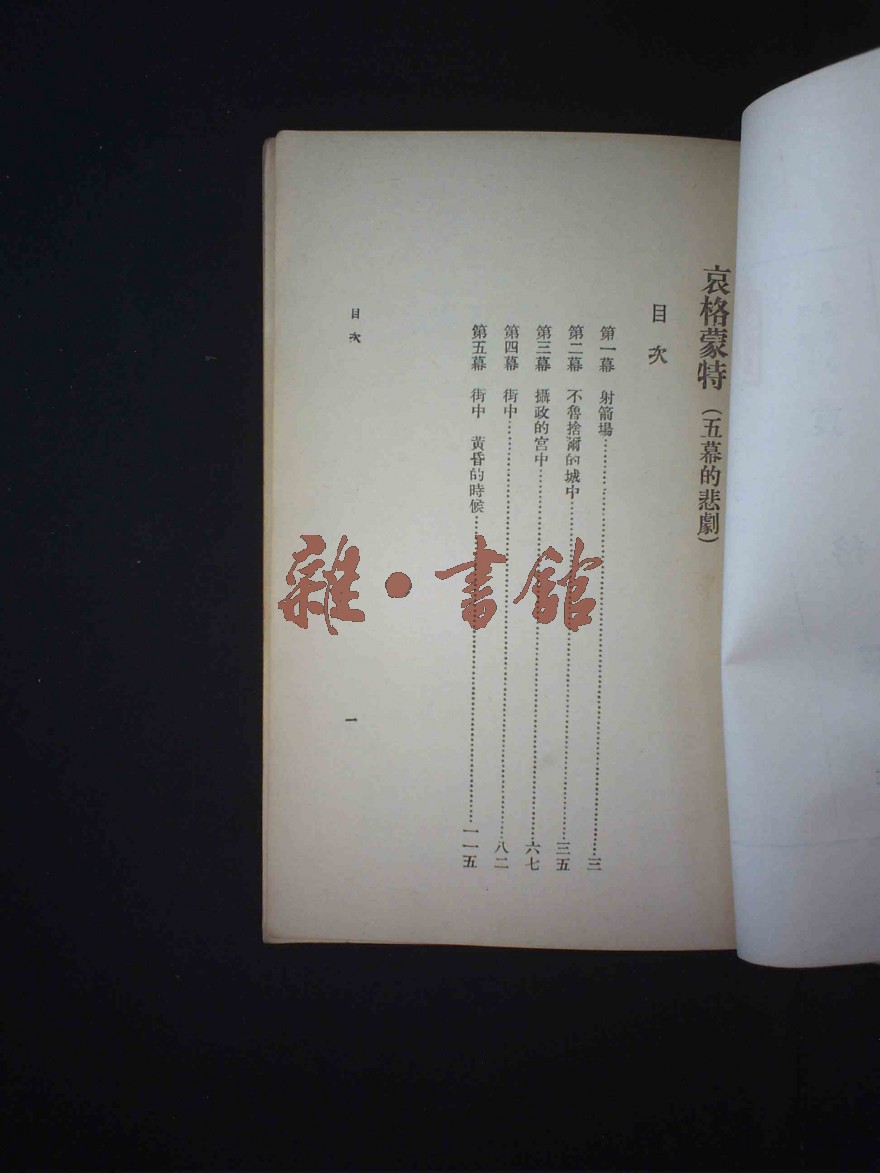 哀格蒙特(五幕的悲劇)
目次
第一幕 射箭場……三
第二幕 不魯捨爾的城中……三五
第三幕 攝政的宮中……六七
第四幕 街中……八二
第五幕 街中 黃昏的時候……一一五
目次 一
雜·書館